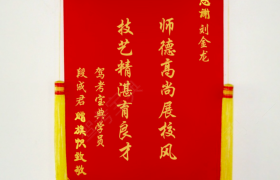 感谢刘金龙
师德高尚展校风
技艺精湛育良才
驾考宝典学员
段成君 赠旗帜致敬